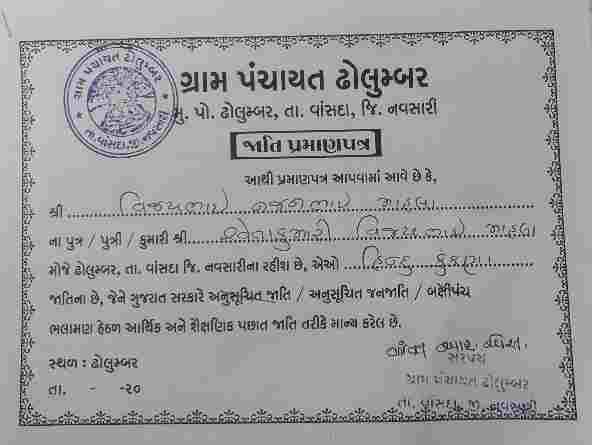 ગ્રામ પંચાયત ઢોલુમ્બર
તા. વાંસદા, જી. નવસારી
ગ્રામ પંચાયત ઢોલુમ્બર
મુ. પો. ઢોલુમ્બર, તા. વાંસદા, જિ. નવસારી
જાતિ પ્રમાણપત્ર
આથી પ્રમાણપત્ર આપવામાં આવે છે કે,
શ્રી વિજયભાઇ
ના પુત્ર / પુત્રી / કુમારી શ્રી વિજયભાઇ
મોજે ઢોલુમ્બર, તા. વાંસદા જિ. નવસારીના રહીશ છે, એઓ હિન્દુ કુંકણા
જાતિના છે, જેને ગુજરાત સરકારે અનુસૂચિત જાતિ / અનુસૂચિત જનજાતિ / બક્ષીપંચ
ભલામણ હેઠળ આર્થિક અને શૈક્ષણિક પછાત જાતિ તરીકે માન્ય કરેલ છે.
સ્થળ : ઢોલુમ્બર
સરપંચ
ગ્રામ પંચાયત ઢોલુમ્બર
તા. - -૨૦
તા. વાંસદા, જી. નવસારી